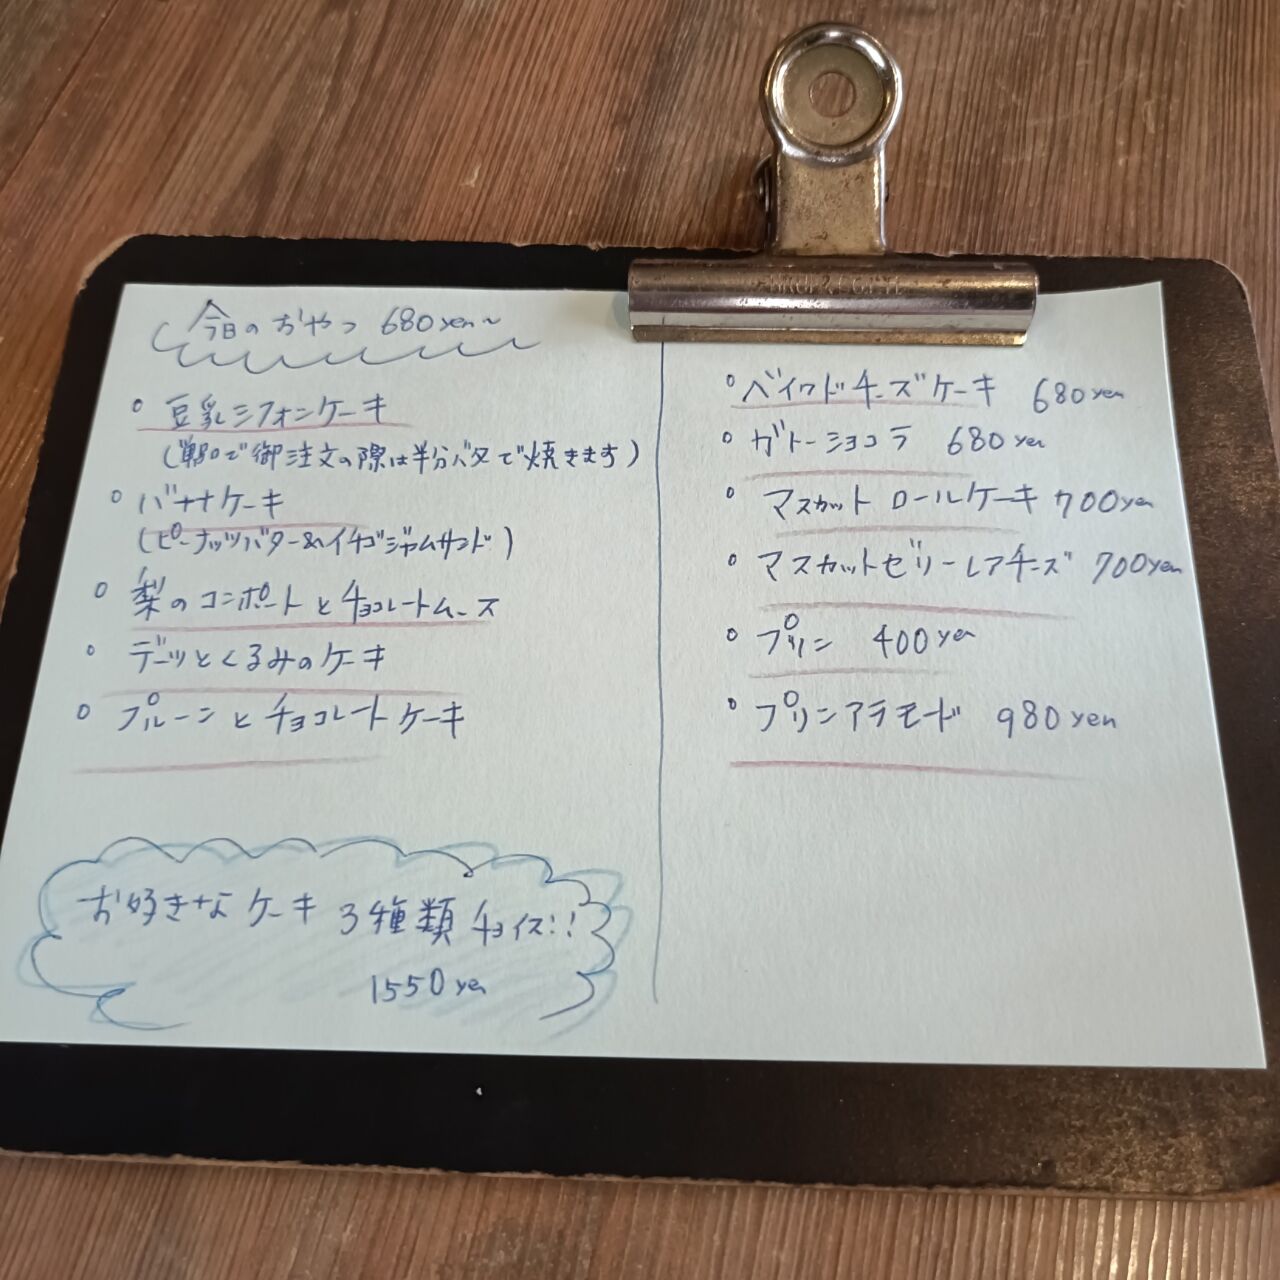 今日のおやつ 680yen~
○ 豆乳シフォンケーキ
(単品で御注文の際は半分バタで焼きます)
○ バナナケーキ
(ピーナッツバター&イチゴジャムサンド)
○ 梨のコンポートとチョコレートムース
○ デーツとくるみのケーキ
○ プルーンとチョコレートケーキ
お好きなケーキ 3種類 チョイス!!
1550yen
○ ベイクドチーズケーキ 680yen
○ ガトーショコラ 680yen
○ マスカット ロールケーキ 700yen
○ マスカットゼリーレアチーズ 700yen
○ プリン 400yen
○ プリンアラモード 980yen